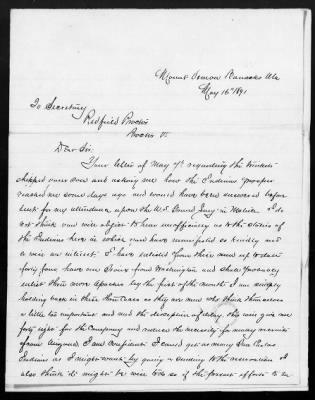 Mount Vernon Barracks Ala
May 16th 1891
To Secretary
Redfield Proctor
Proctor Vt
Dear Sir:
Your letter of May 7th regarding the trunks
shipped over here and asking me how the Indians prosper
reached me some days ago and would have been answered before
but for my attendance upon the U.S. Grand Jury in Mobile. I do
not think you will object to hear unofficially as to the status of
the Indians here in which you have manifested so kindly and
a very an interest. I have enlisted from there and up to date
forty four, have one Sioux from Washington and shall probably
enlist three more Apaches by the first of the month. I am simply
holding back in three cases as they are men who think themselves
a little too important and need the discipline of delay, this will give me
forty eight for the Company and reduce the necessity for many recruits
from beyond. I am confident I could get as many San Carlos
Indians as I might want by going or sending to the reservation. I
also think it might be well to see if the parent efforts to en